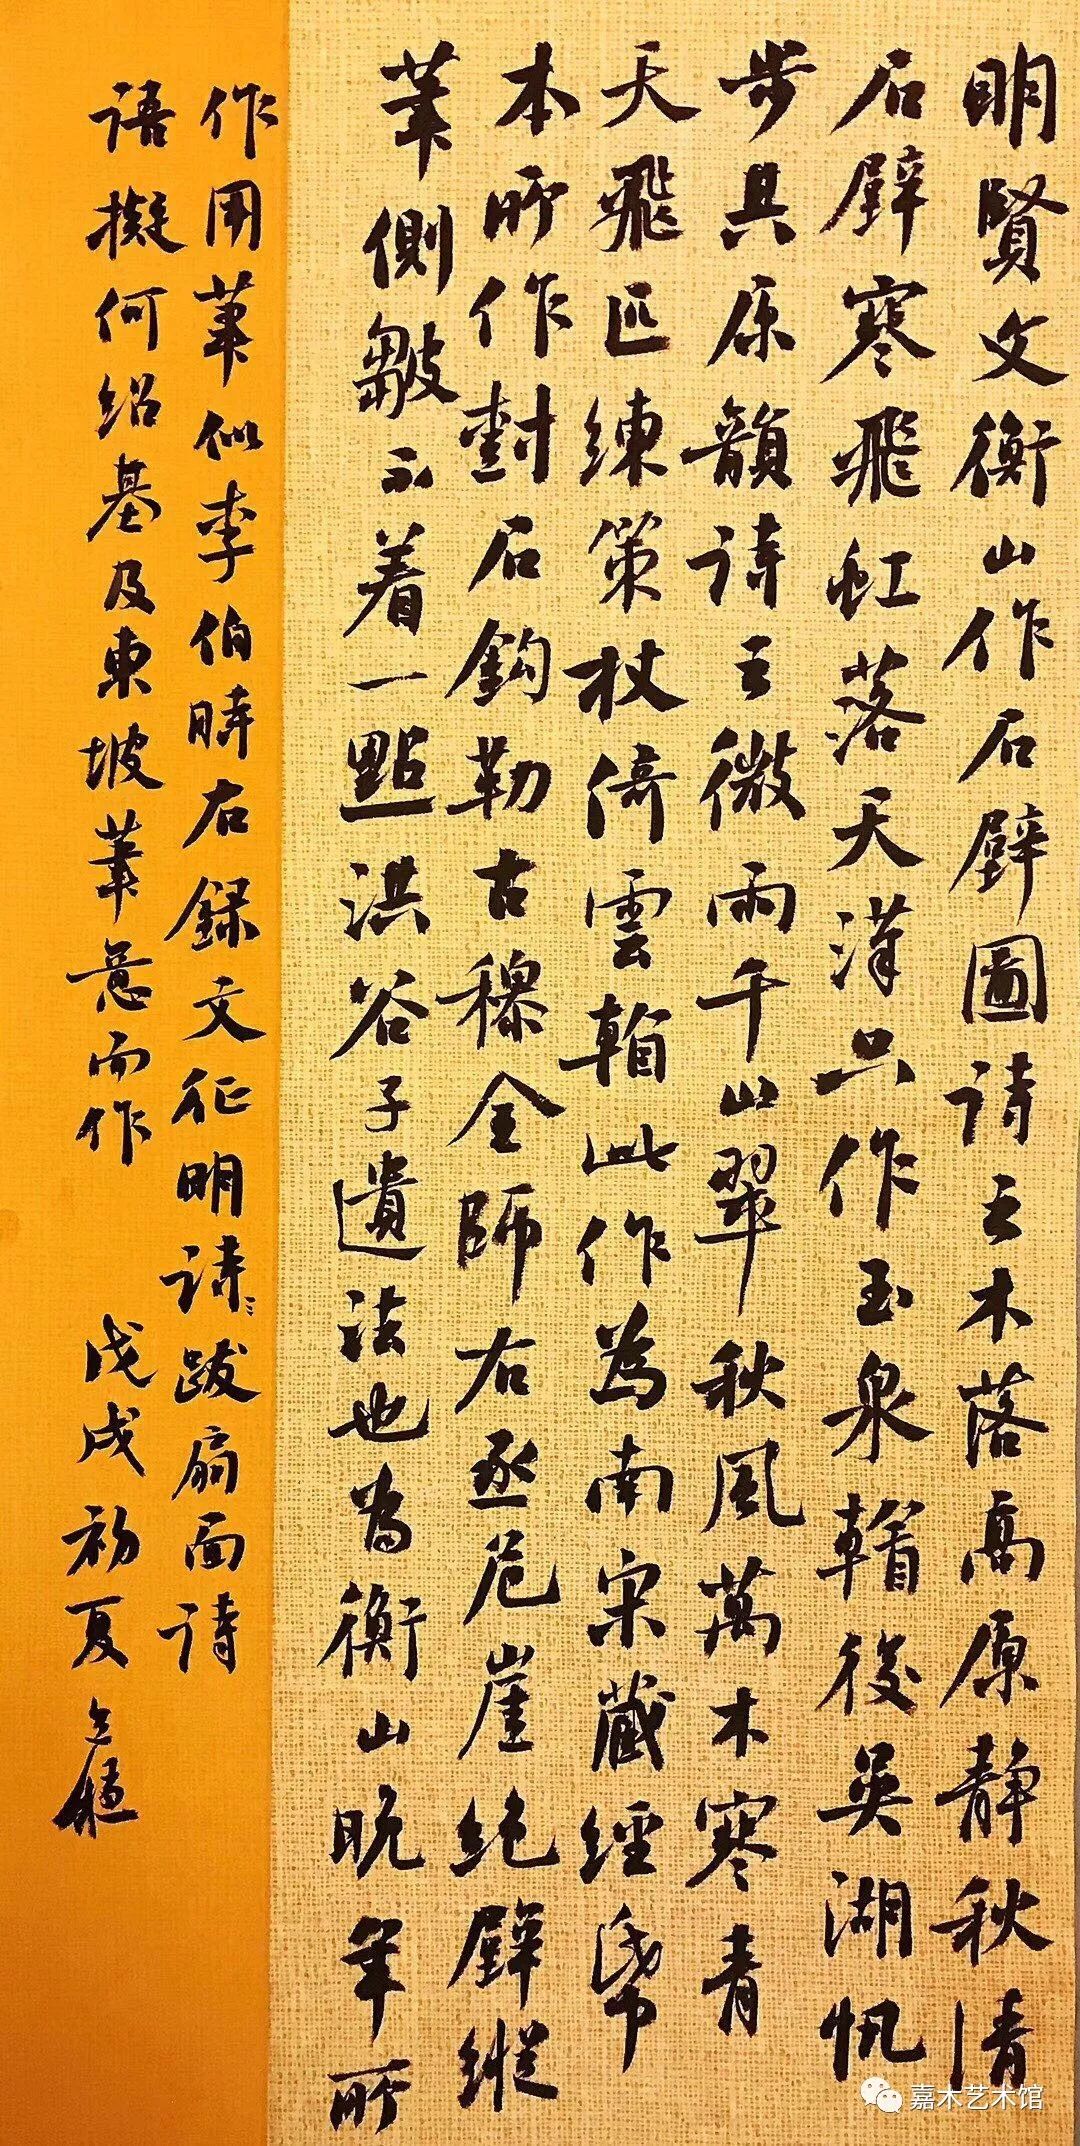 明賢文衡山作石壁圖诗云木落高原静秋清
石壁寒飛虹落天漢只作玉泉看後吴湖帆
步其原韻诗云微雨千山翠秋風萬木寒青
天飛匹練策杖倚雲看此作為南宋藏經帋
本所作對石鈎勒古穆全師右丞危崖绝壁縱
筆側皴不着一點洪谷子遺法也為衡山晚年所
作用筆似李伯時右録文征明诗跋扇面诗
語擬何绍基及東坡筆意而作 戊戌初夏
嘉木艺术馆